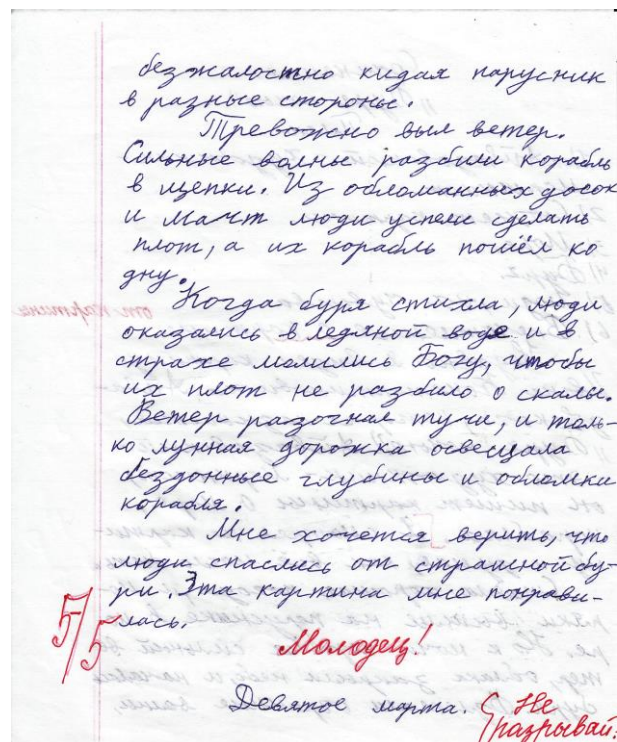 безжалостно кидая парусник
в разные стороны.
Тревожно выл ветер.
Сильные волны разбили корабль
в щепки. Из обломанных досок
и мачт люди успели сделать
плот, а их корабль пошёл ко
дну.
Когда буря стихла, люди
оказались в ледяной воде и в
страхе молились Богу, чтобы
их плот не разбило о скалы.
Ветер разогнал тучи, и толь-
ко лунная дорожка освещала
бездонные глубины и обломки
корабля.
Мне хочется верить, что
люди спаслись от страшной бу-
ри. Эта картина мне понрави-
лась.
5/5
Молодец!
Девятое марта.
Не
разрывай!